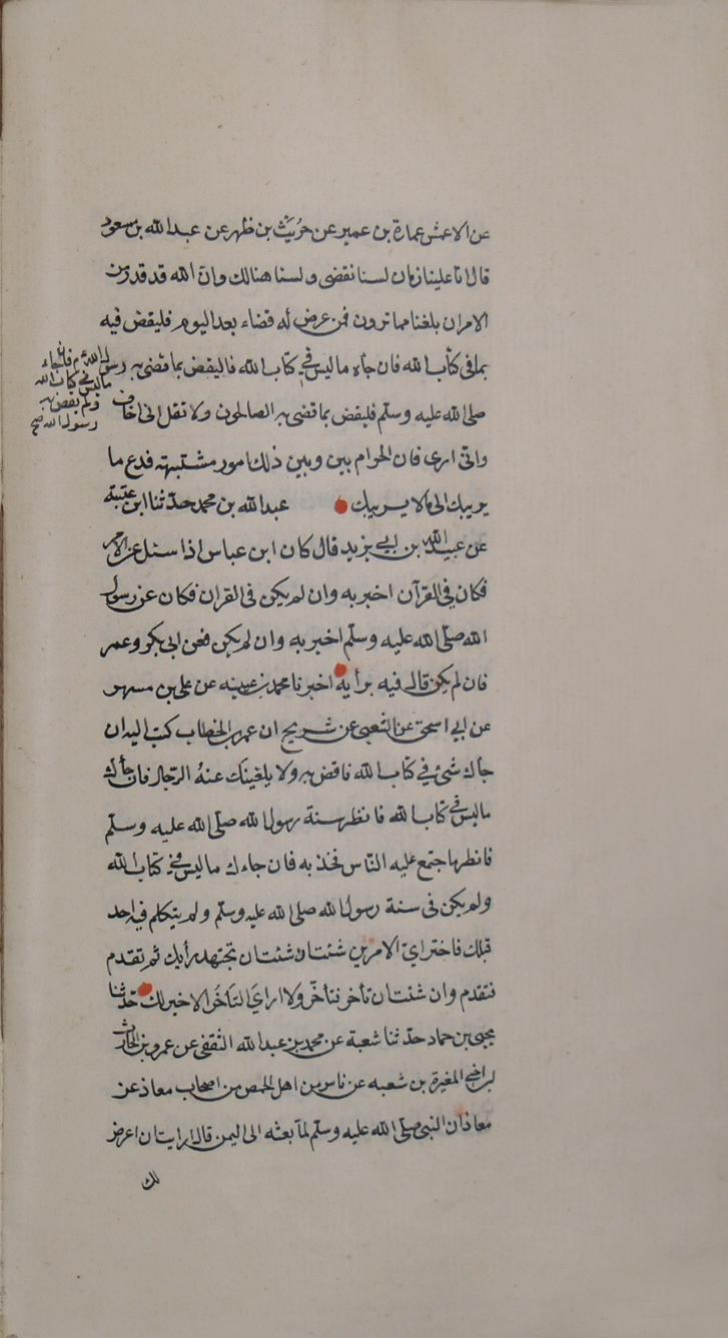 عن الاعمش عمارة بن عمير عن حُريث بن ظهر عن عبدالله بن مسعود
قال اتا علينا زمان لسنا نقضى ولسنا هنالك وانّ الله قد قدر من
الامر ان بلغنا مما ترون فمن عرض له قضاء بعد اليوم فليقض فيه
بما فى كتاب الله فان جاه ما ليس فى كتاب الله فاليقض بما قضى به رسول الله
صلى الله عليه وسلم فليقض بما قضى به الصالحون ولا تقل انى اخاف
وانّى ارى فان الحرام بين وبين ذلك امور مشتبهته فدع ما
يريبك الى ما لا يريبك عبدالله بن محمد حدّثنا ابن عتبة
عن عبيد الله بن ابي يزيد قال كان ابن عباس اذا سئل عن الامر
فكان فى القرآن اخبر به وان لم يكن فى القران فكان عن رسول
الله صلى الله عليه وسلّم اخبر به وان لم يكن فعن ابى بكر وعمر
فان لم يكن قال فيه برأيه اخبرنا محمد بن عيينه عن على بن مسهر
عن ابي اسحق عن الشعبى عن شريح ان عمر بن الخطاب كتب اليه ان
جاك شئ في كتاب الله فاقض به ولا يلفينك عنهُ الرّجال فان جأك
ما ليس فى كتاب الله فانظر سنة رسول الله صلّى الله عليه وسلّم
فانظر ما اجتمع عليه النّاس فخذ به فان جاءك ما ليس فى كتاب الله
ولم يكن فى سنة رسول الله صلى الله عليه وسلم ولم يتكلم فيه احد
قبلك فاختر اىّ الامرين شئت ان شئت ان تجتهد برأيك ثم تقدم
فتقدم وان شئت ان تأخر فتأخّر ولا ارايَ التأخُر الا خير لك حدّثنا
يحيى بن حماد حدّثنا شعبة عن محمد بن عبدالله الثقفى عن عمرو بن الحارث
ابن اخى المغيرة بن شعبه عن ناس من اهل الحمص من اصحاب معاذ عن
معاذ ان النبى صلّى الله عليه وسلّم لمآ بعثه الى اليمن قال ارايت ان اعرض
لك
م فان جاء
ما ليس فى كتاب الله
ولم يقض به
رسول الله صح